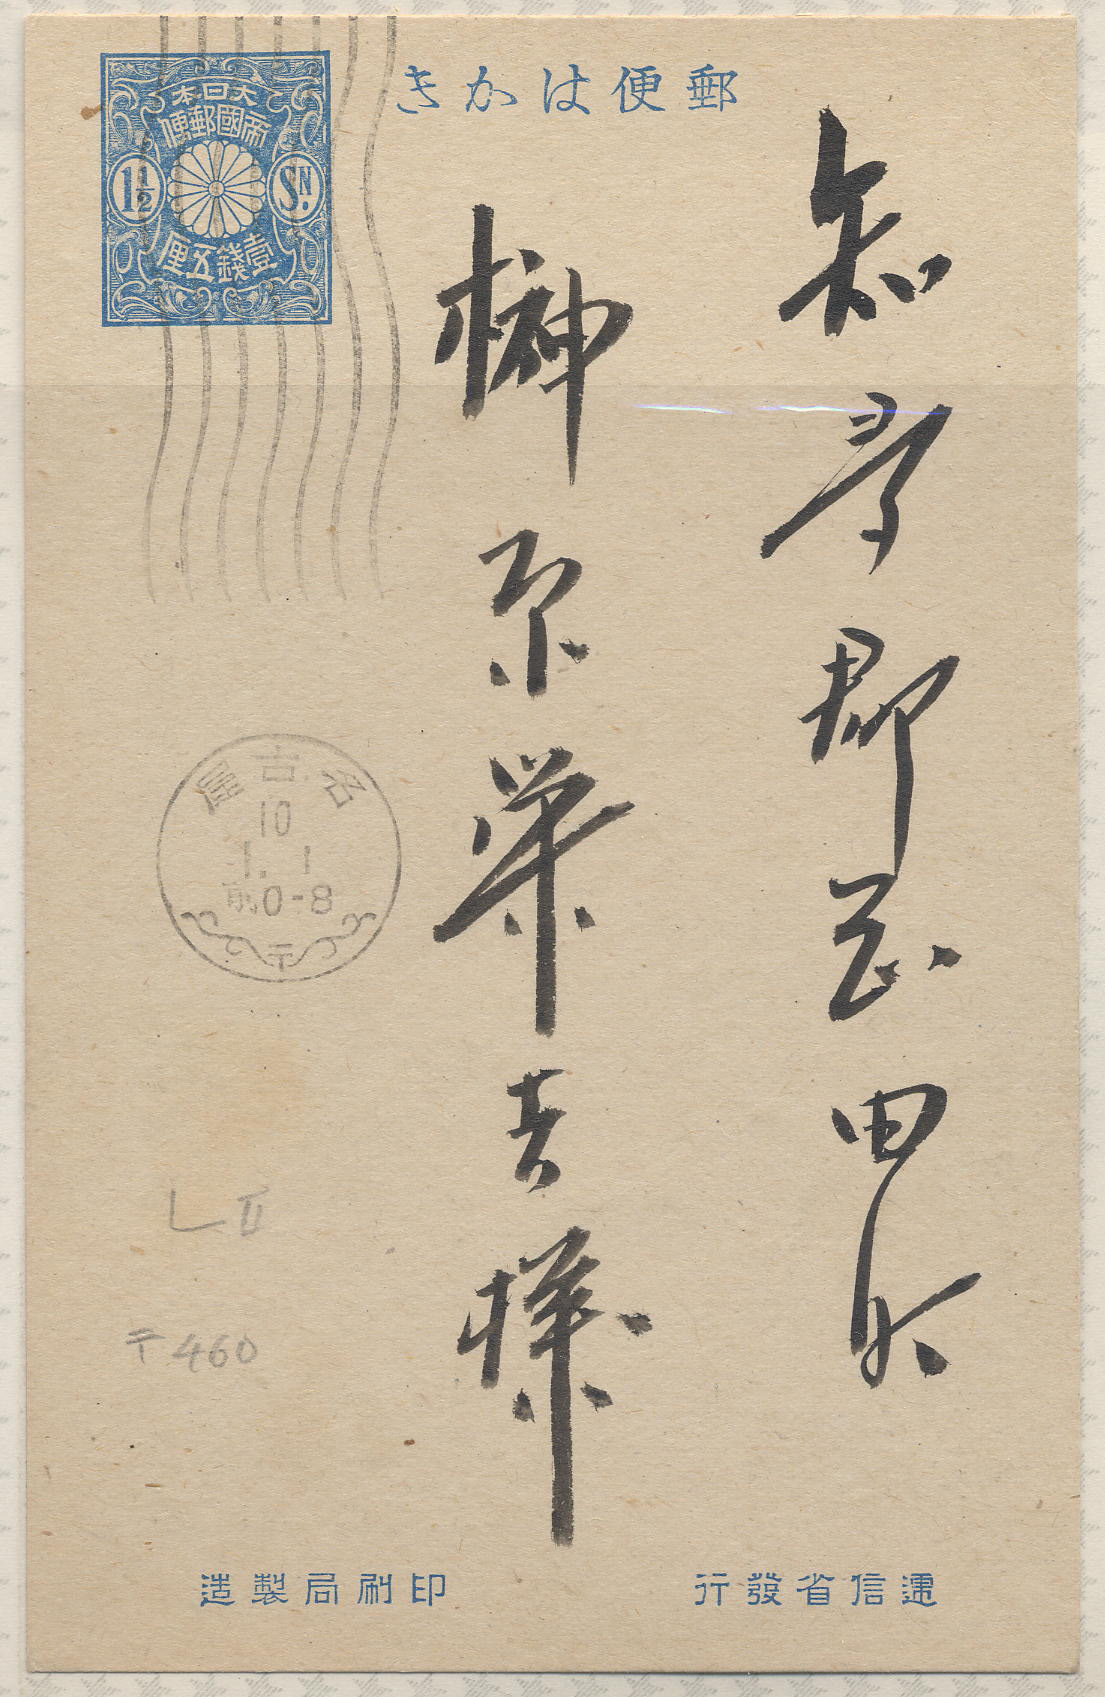 郵便はかき
大日本
帝國郵便
1½ SN.
壹錢五厘
知多郡岡田
榊原栄吉様
名古屋
10
1. 1
前0-8
〒
L II
〒460
遞信省發行
印刷局製造